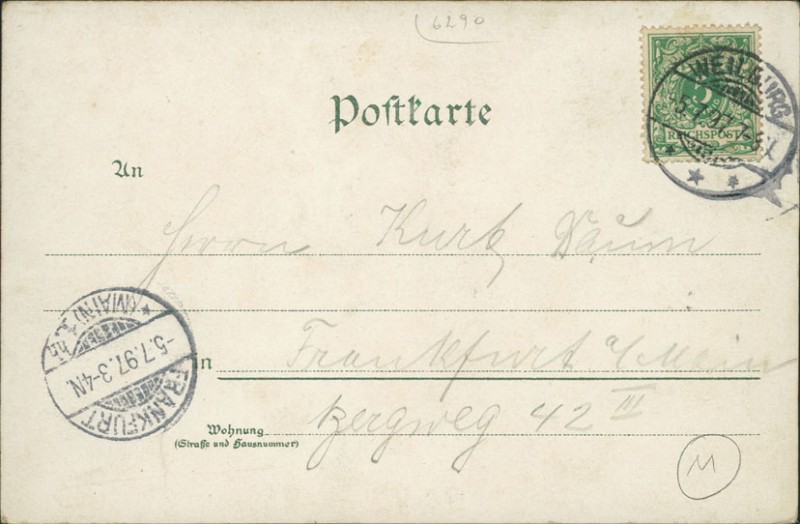 6290
Postkarte
5
REICHSPOST
WEILBURG
5.7.97
An
Herrn Kurt Daum
FRANKFURT (MAIN) 1.
-5.7.97. 3-4N.
in
Frankfurt a/Main
Bergweg 42 III
Wohnung
(Straße und Hausnummer)
M